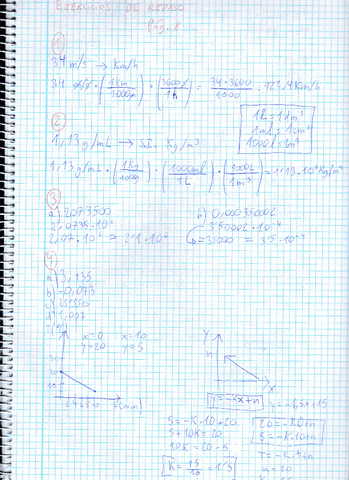 EJERCICIOS DE REPASO
Pág. 8
1
34 m/s → Km/h
34 m/s · (1Km/1000m) · (3600s/1h) = 34·3600/1000 = 122,4Km/h
1L = 1dm³
1ml = 1cm³
1000l = 1m³
2
1,13g/mL → S.I. Kg/m³
1,13g/mL · (1Kg/1000g) · (1000ml/1L) · (1000L/1m³) = 1'13·10³Kg/m³
3
a) 2073500
2'0735·10⁶
2,07·10⁶ ≈ 2'1·10⁶
b) 0,000350002
3'50002·10⁻⁴
= 3'5·10⁻⁴
4
a) 3,135
b) -0,073
d) 1,007
x=0 x=10
y=20 y=5
30
20
10
2 4 6 8 10 t(min)
Y
n
X
y=-Kx+n
y=-1,5x+15
5=-K·10+20
5+10K=20
10K=20-5
K=15/10=1'5
20=-K0+n
5=-K·10+n
n=20